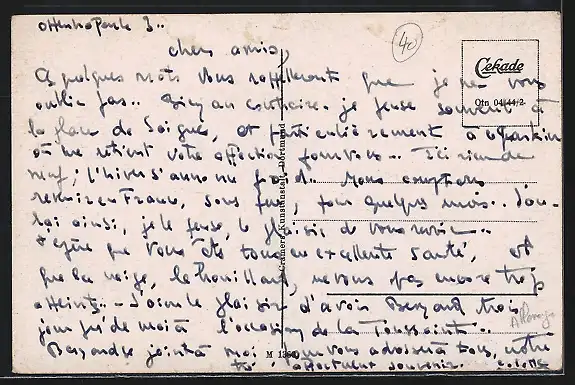 3..
40
Cekade
chers amis,
Ces quelques mots vous rappelleront que je ne vous
oublie pas.. Bien au contraire. je pense souvent à
Qtn 0444/2
la place de Soignes, et particulièrement à
où me retient votre affection pour vous.. Ici rien de
neuf; l'hiver s'annonce froid. Nous comptons
revenir en France, sous peu, pour quelques mois.. J'au-
rai ainsi, je le pense, le plaisir de vous revoir..
J'espère que vous êtes tous en excellente santé, et
que la neige, le brouillard, ne vous a pas encore trop
atteints.- J'ai eu le plaisir d'avoir Bernard trois
jours près de moi à l'occasion de la Toussaint..
Bernard se joint à moi pour vous adresser à tous, notre
très affectueux souvenir. Colette
Cramers Kunstanstalt, Dortmund
M